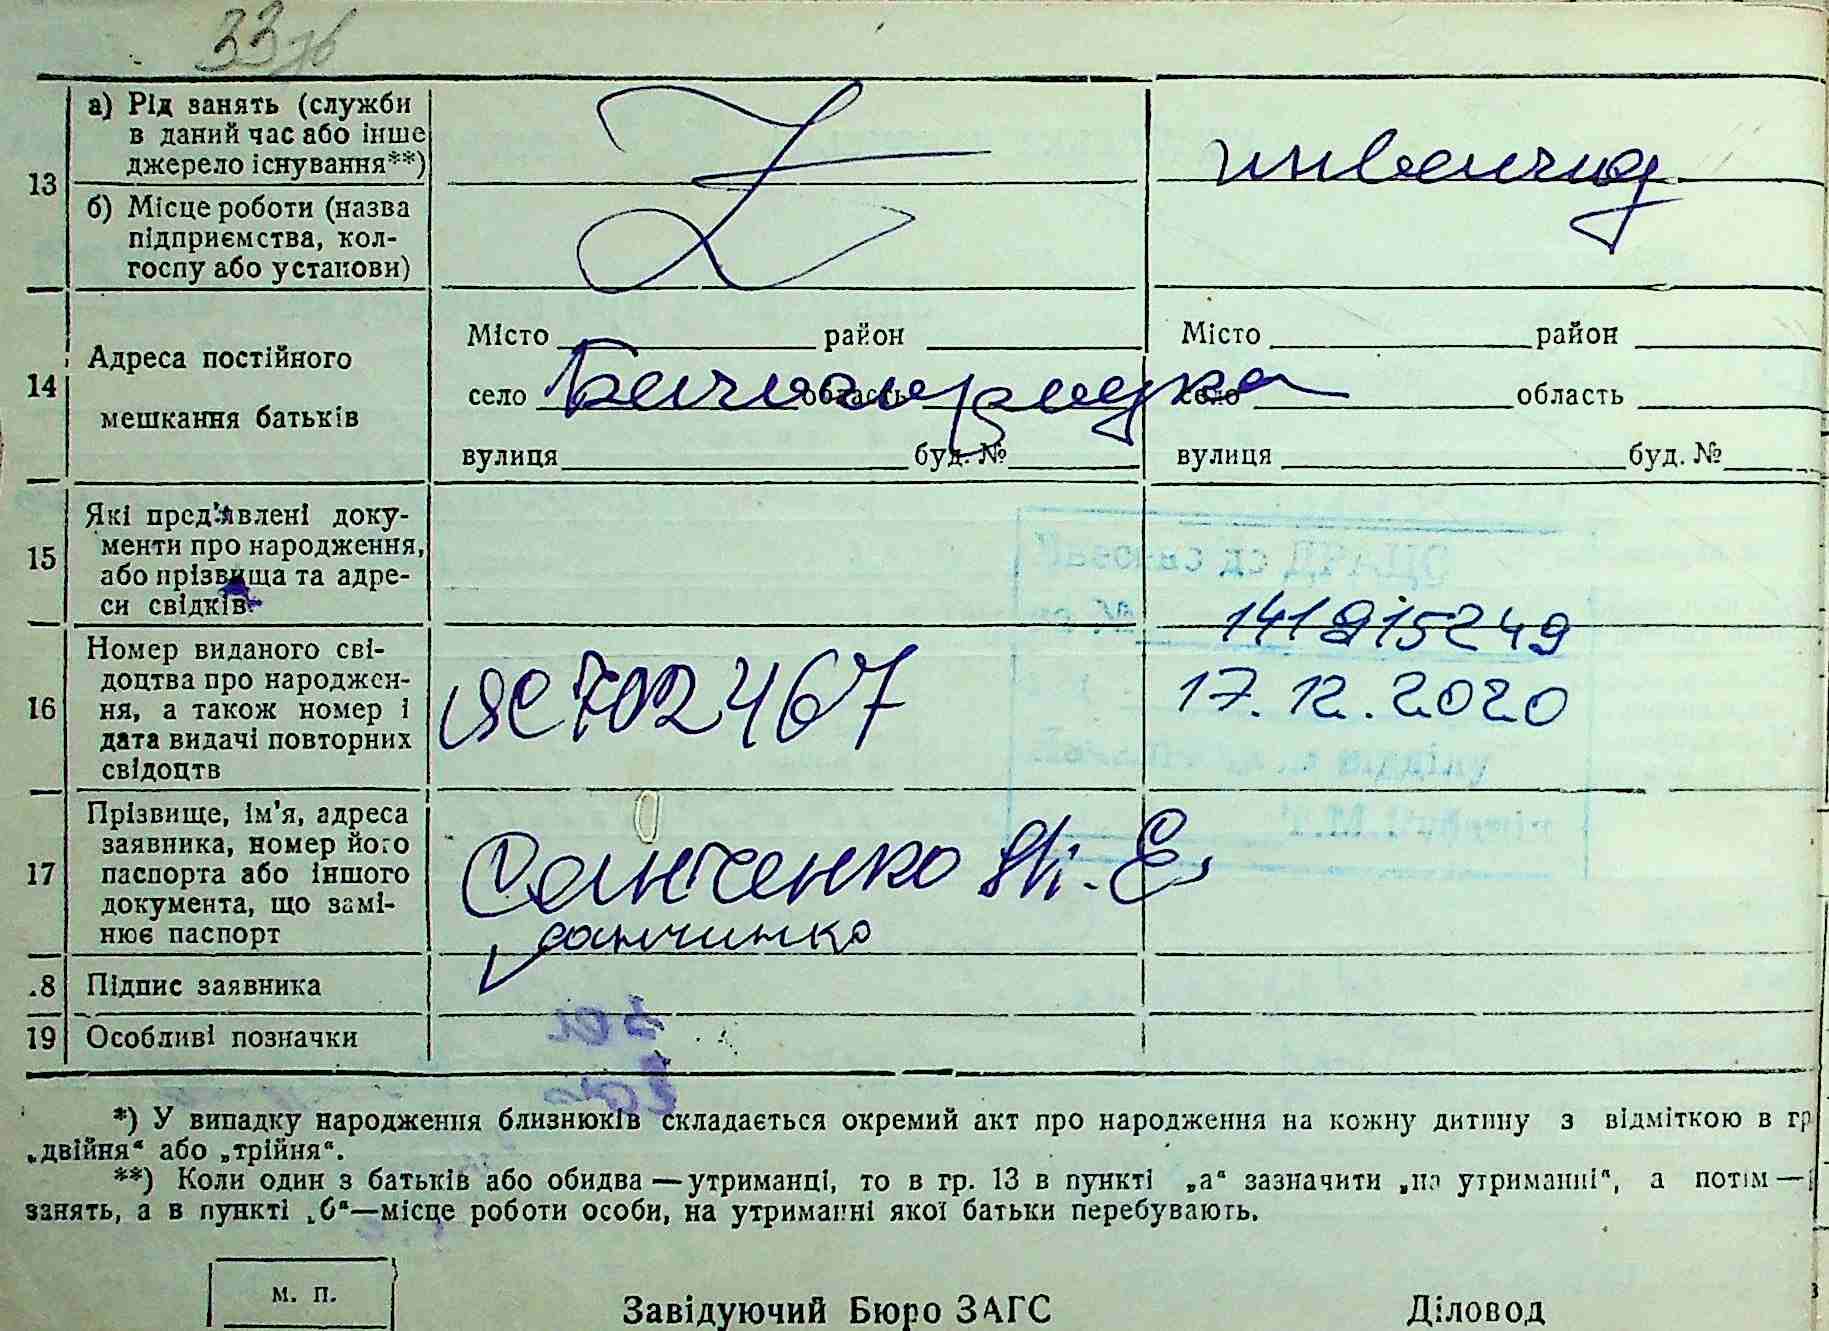 13
а) Рід занять (служби
в даний час або інше
джерело існування**)
б) Місце роботи (назва
підприємства, кол-
госпу або установи)
14
Адреса постійного
мешкання батьків
Місто район
село область
вулиця буд. №
Місто район
село область
вулиця буд. №
15
Які пред'явлені доку-
менти про народження,
або прізвища та адре-
си свідків
16
Номер виданого сві-
доцтва про народжен-
ня, а також номер і
дата видачі повторних
свідоцтв
ЯС 702467
141915249
17.12.2020
17
Прізвище, ім'я, адреса
заявника, номер його
паспорта або іншого
документа, що замі-
нює паспорт
Санченко
санчинко
.8 Підпис заявника
19 Особливі позначки
*) У випадку народження близнюків складається окремий акт про народження на кожну дитину з відміткою в гр
„двійня“ або „трійня“.
**) Коли один з батьків або обидва — утриманці, то в гр. 13 в пункті „а“ зазначити „на утриманні“, а потім —
занять, а в пункті „б“—місце роботи особи, на утриманні якої батьки перебувають.
м. п.
Завідуючий Бюро ЗАГС
Діловод